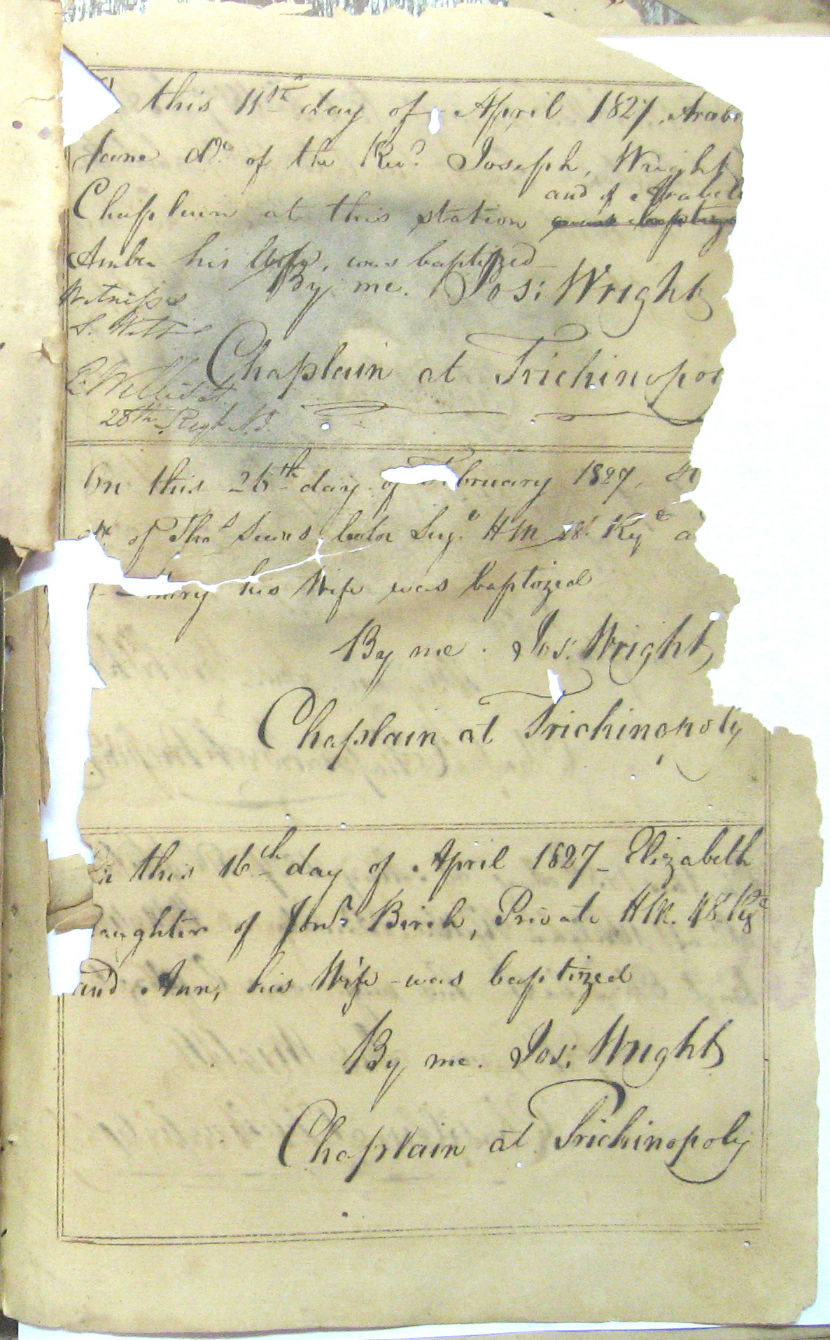 this 11th day of April 1827, Arabe
Jane Dr. of the Revd. Joseph, Wright
Chaplain at this station and of Arabel
Amber his Wife, was baptized
By me. Jos: Wright
Witnesses
Chaplain at Trichinopo
28th Regt N.I.
On this 26th day of February 1827,
of Thos. H.M. 48
Mary his Wife was baptized
By me. Jos: Wright
Chaplain at Trichinopoly
this 16th day of April 1827 - Elizabeth
daughter of Jonn. Birch, Private H.M. 48 Rgt
and Ann, his Wife - was baptized
By me. Jos: Wright
Chaplain at Trichinopoly